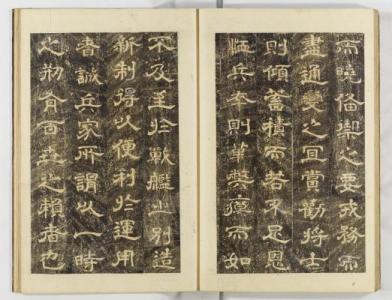 而曉俻禦之要戎務而
盡通變之宜當勸將士
則傾蓄積而若不足恩
恤兵卒則弊而如
不及至於艦之別造
新制得以便利於運用
者誠兵家所謂以一時
之刱有百世之賴者也